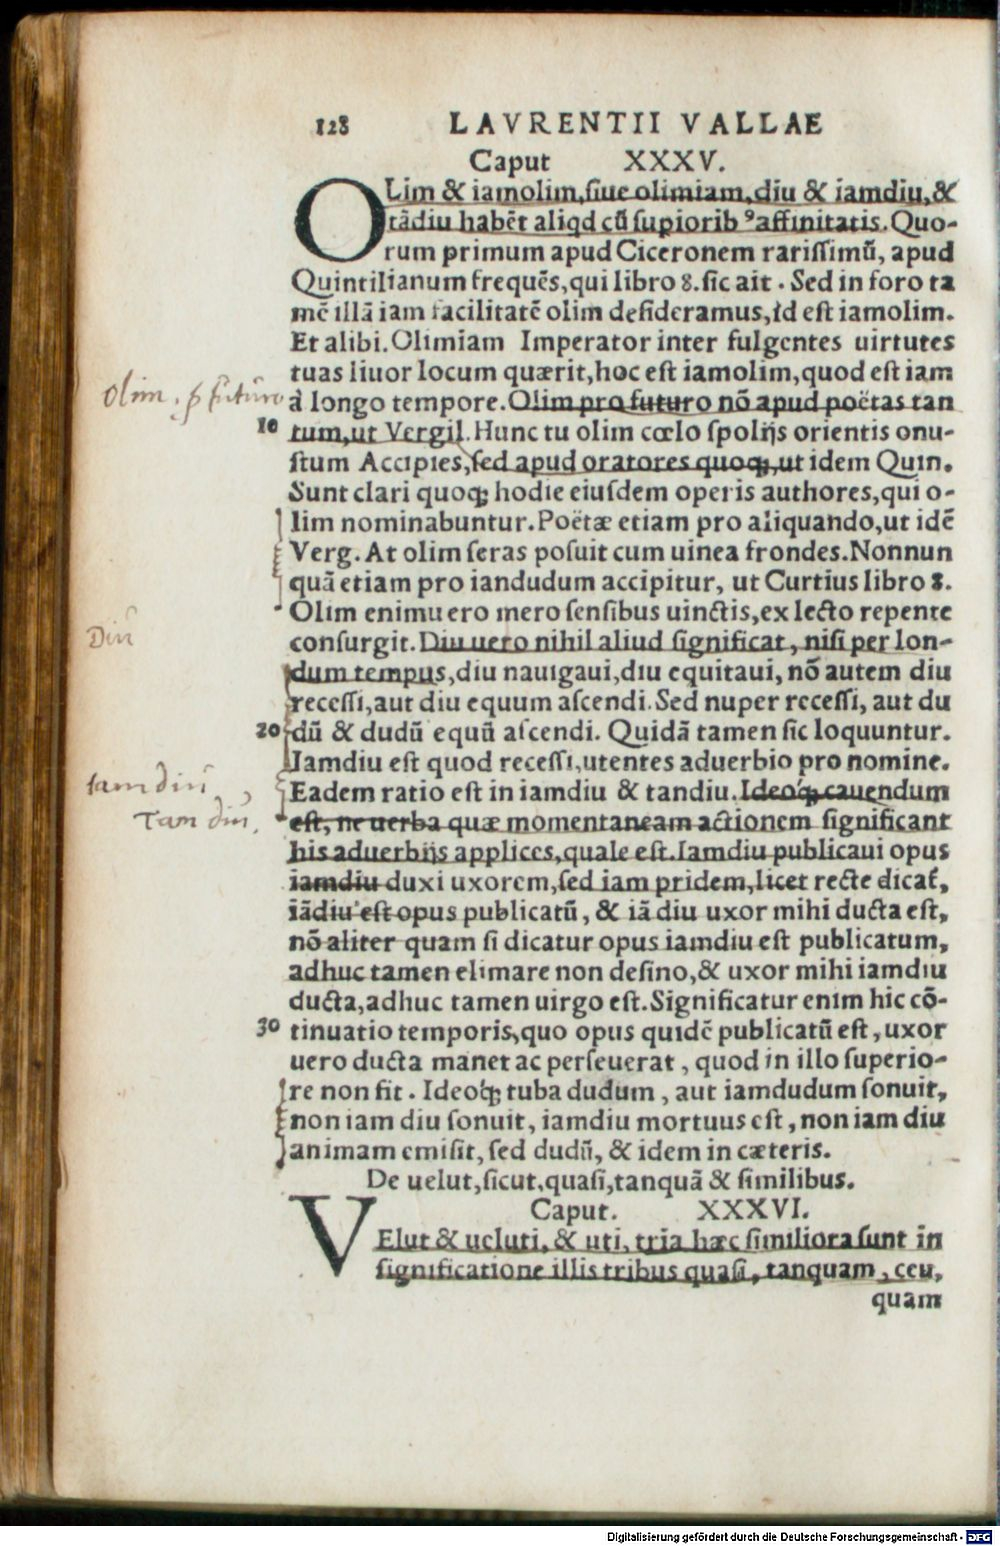 128 LAVRENTII VALLAE
Caput XXXV.
OLim & iamolim,siue olimiam,diu & iamdiu,&
tãdiu habẽt aliqd cũ supiorib⁹ affinitatis.Quo-
rum primum apud Ciceronem rarissimũ, apud
Quintilianum frequẽs,qui libro 8.sic ait . Sed in foro ta
mẽ illã iam facilitatẽ olim desideramus,id est iamolim.
Et alibi.Olimiam Imperator inter fulgentes uirtutes
tuas liuor locum quærit,hoc est iamolim,quod est iam
Olim . ꝓ futuro
à longo tempore.Olim pro futuro nõ apud poëtas tan
10 tum,ut Vergil.Hunc tu olim cœlo spolijs orientis onu-
stum Accipies,sed apud oratores quoqꝫ,ut idem Quin.
Sunt clari quoqꝫ hodie eiusdem operis authores,qui o-
lim nominabuntur.Poëtæ etiam pro aliquando,ut idẽ
Verg. At olim seras posuit cum uinea frondes.Nonnun
quã etiam pro iandudum accipitur, ut Curtius libro 8.
Olim enimuero mero sensibus uinctis,ex lecto repente
Diu
consurgit.Diu uero nihil aliud significat, nisi per lon-
dum tempus,diu nauigaui,diu equitaui, nõ autem diu
recessi,aut diu equum ascendi.Sed nuper recessi, aut du
20 dũ & dudũ equũ ascendi. Quidã tamen sic loquuntur.
Iamdiu est quod recessi,utentes aduerbio pro nomine.
Iam diu
Eadem ratio est in iamdiu & tandiu.Ideoqꝫ cauendum
Tam diu,
est, ne uerba quæ momentaneam actionem significant
his aduerbijs applices,quale est.Iamdiu publicaui opus
iamdiu duxi uxorem,sed iam pridem,licet recte dicat̃,
iãdiu est opus publicatũ, & iã diu uxor mihi ducta est,
nõ aliter quam si dicatur opus iamdiu est publicatum,
adhuc tamen elimare non desino,& uxor mihi iamdiu
ducta,adhuc tamen uirgo est.Significatur enim hic cõ-
30 tinuatio temporis,quo opus quidẽ publicatũ est, uxor
uero ducta manet ac perseuerat, quod in illo superio-
re non fit . Ideoqꝫ tuba dudum, aut iamdudum sonuit,
non iam diu sonuit, iamdiu mortuus est, non iam diu
animam emisit, sed dudũ, & idem in cæteris.
De uelut,sicut,quasi,tanquã & similibus.
Caput. XXXVI.
VElut & ueluti, & uti, tria hæc similiora sunt in
significatione illis tribus quasi, tanquam, ceu,
quam
Digitalisierung gefördert durch die Deutsche Forschungsgemeinschaft - DFG